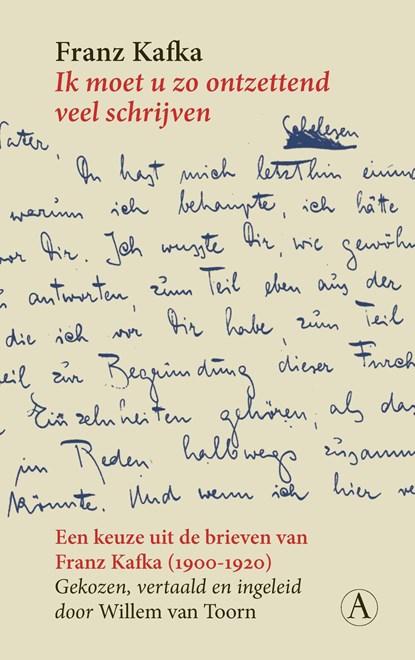 Franz Kafka
Ik moet u zo ontzettend
veel schrijven
Vater,
Du hast mich letzthin einma
warum ich behaupte, ich hätte
vor Dir. Ich wusste Dir, wie gewöhn
antworten, zum Teil eben aus der
die ich vor Dir habe, zum Teil
eil zur Begründung dieser Furch
Einzelnheiten gehören, als das
im Reden halbwegs zusamm
könnte. Und wenn ich hier ve
Een keuze uit de brieven van
Franz Kafka (1900-1920)
Gekozen, vertaald en ingeleid
door Willem van Toorn
A